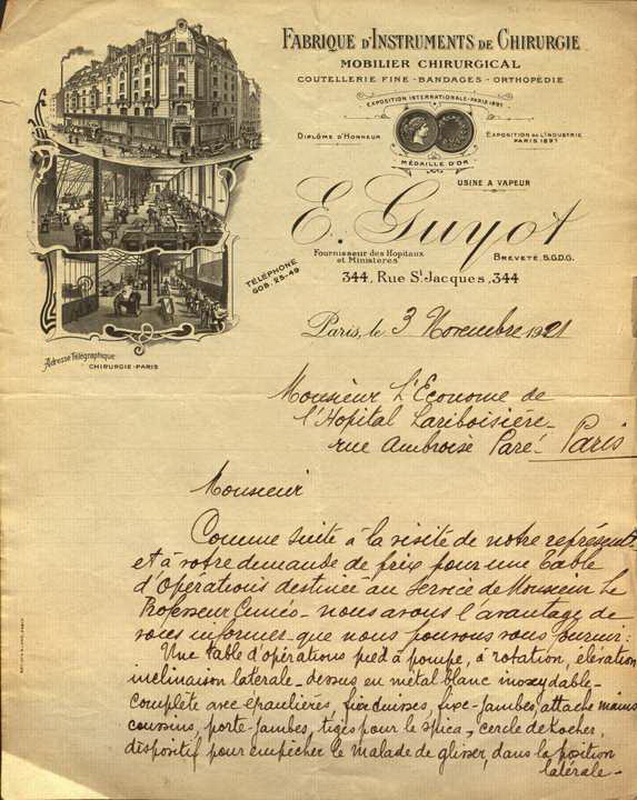 FABRIQUE D'INSTRUMENTS DE CHIRURGIE
MOBILIER CHIRURGICAL
COUTELLERIE FINE - BANDAGES - ORTHOPÉDIE
EXPOSITION INTERNATIONALE - PARIS 1891
DIPLÔME D'HONNEUR
EXPOSITION DE L'INDUSTRIE
PARIS 1897
MÉDAILLE D'OR
USINE A VAPEUR
E. Guyot
Fournisseur des Hopitaux
et Ministères
BREVETÉ S.G.D.G.
TÉLÉPHONE
GOB. 25-49
344, Rue St-Jacques, 344
Paris, le 3 Novembre 1921
Adresse Télégraphique
CHIRURGIE-PARIS
Monsieur L'Econome de
l'Hopital Lariboisière -
rue Ambroise Paré - Paris
Monsieur
Comme suite à la visite de notre représent
et à votre demande de prix pour une Table
d'Opérations destinée au Service de Monsieur Le
Professeur Cunéo - nous avons l'avantage de
vous informer que nous pouvons vous fournir :
Une table d'opérations pied à pompe, à rotation, élévation
inclinaison latérale - dessus en métal blanc inoxydable -
complète avec épaulières, fixe cuisses, fixe-jambes, attache mains
coussins, porte-jambes, tiges pour le spica, cercle de Kocher,
dispositif pour empêcher le malade de glisser, dans la position
latérale -